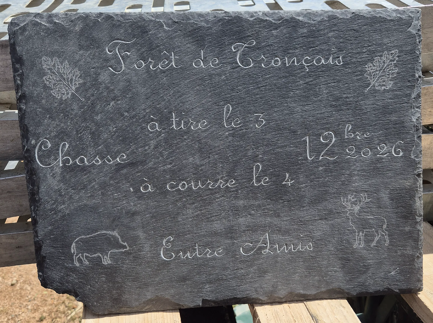 Forêt de Tronçais
à tire le 3
Chasse 12bre 2026
à courre le 4
Entre Amis